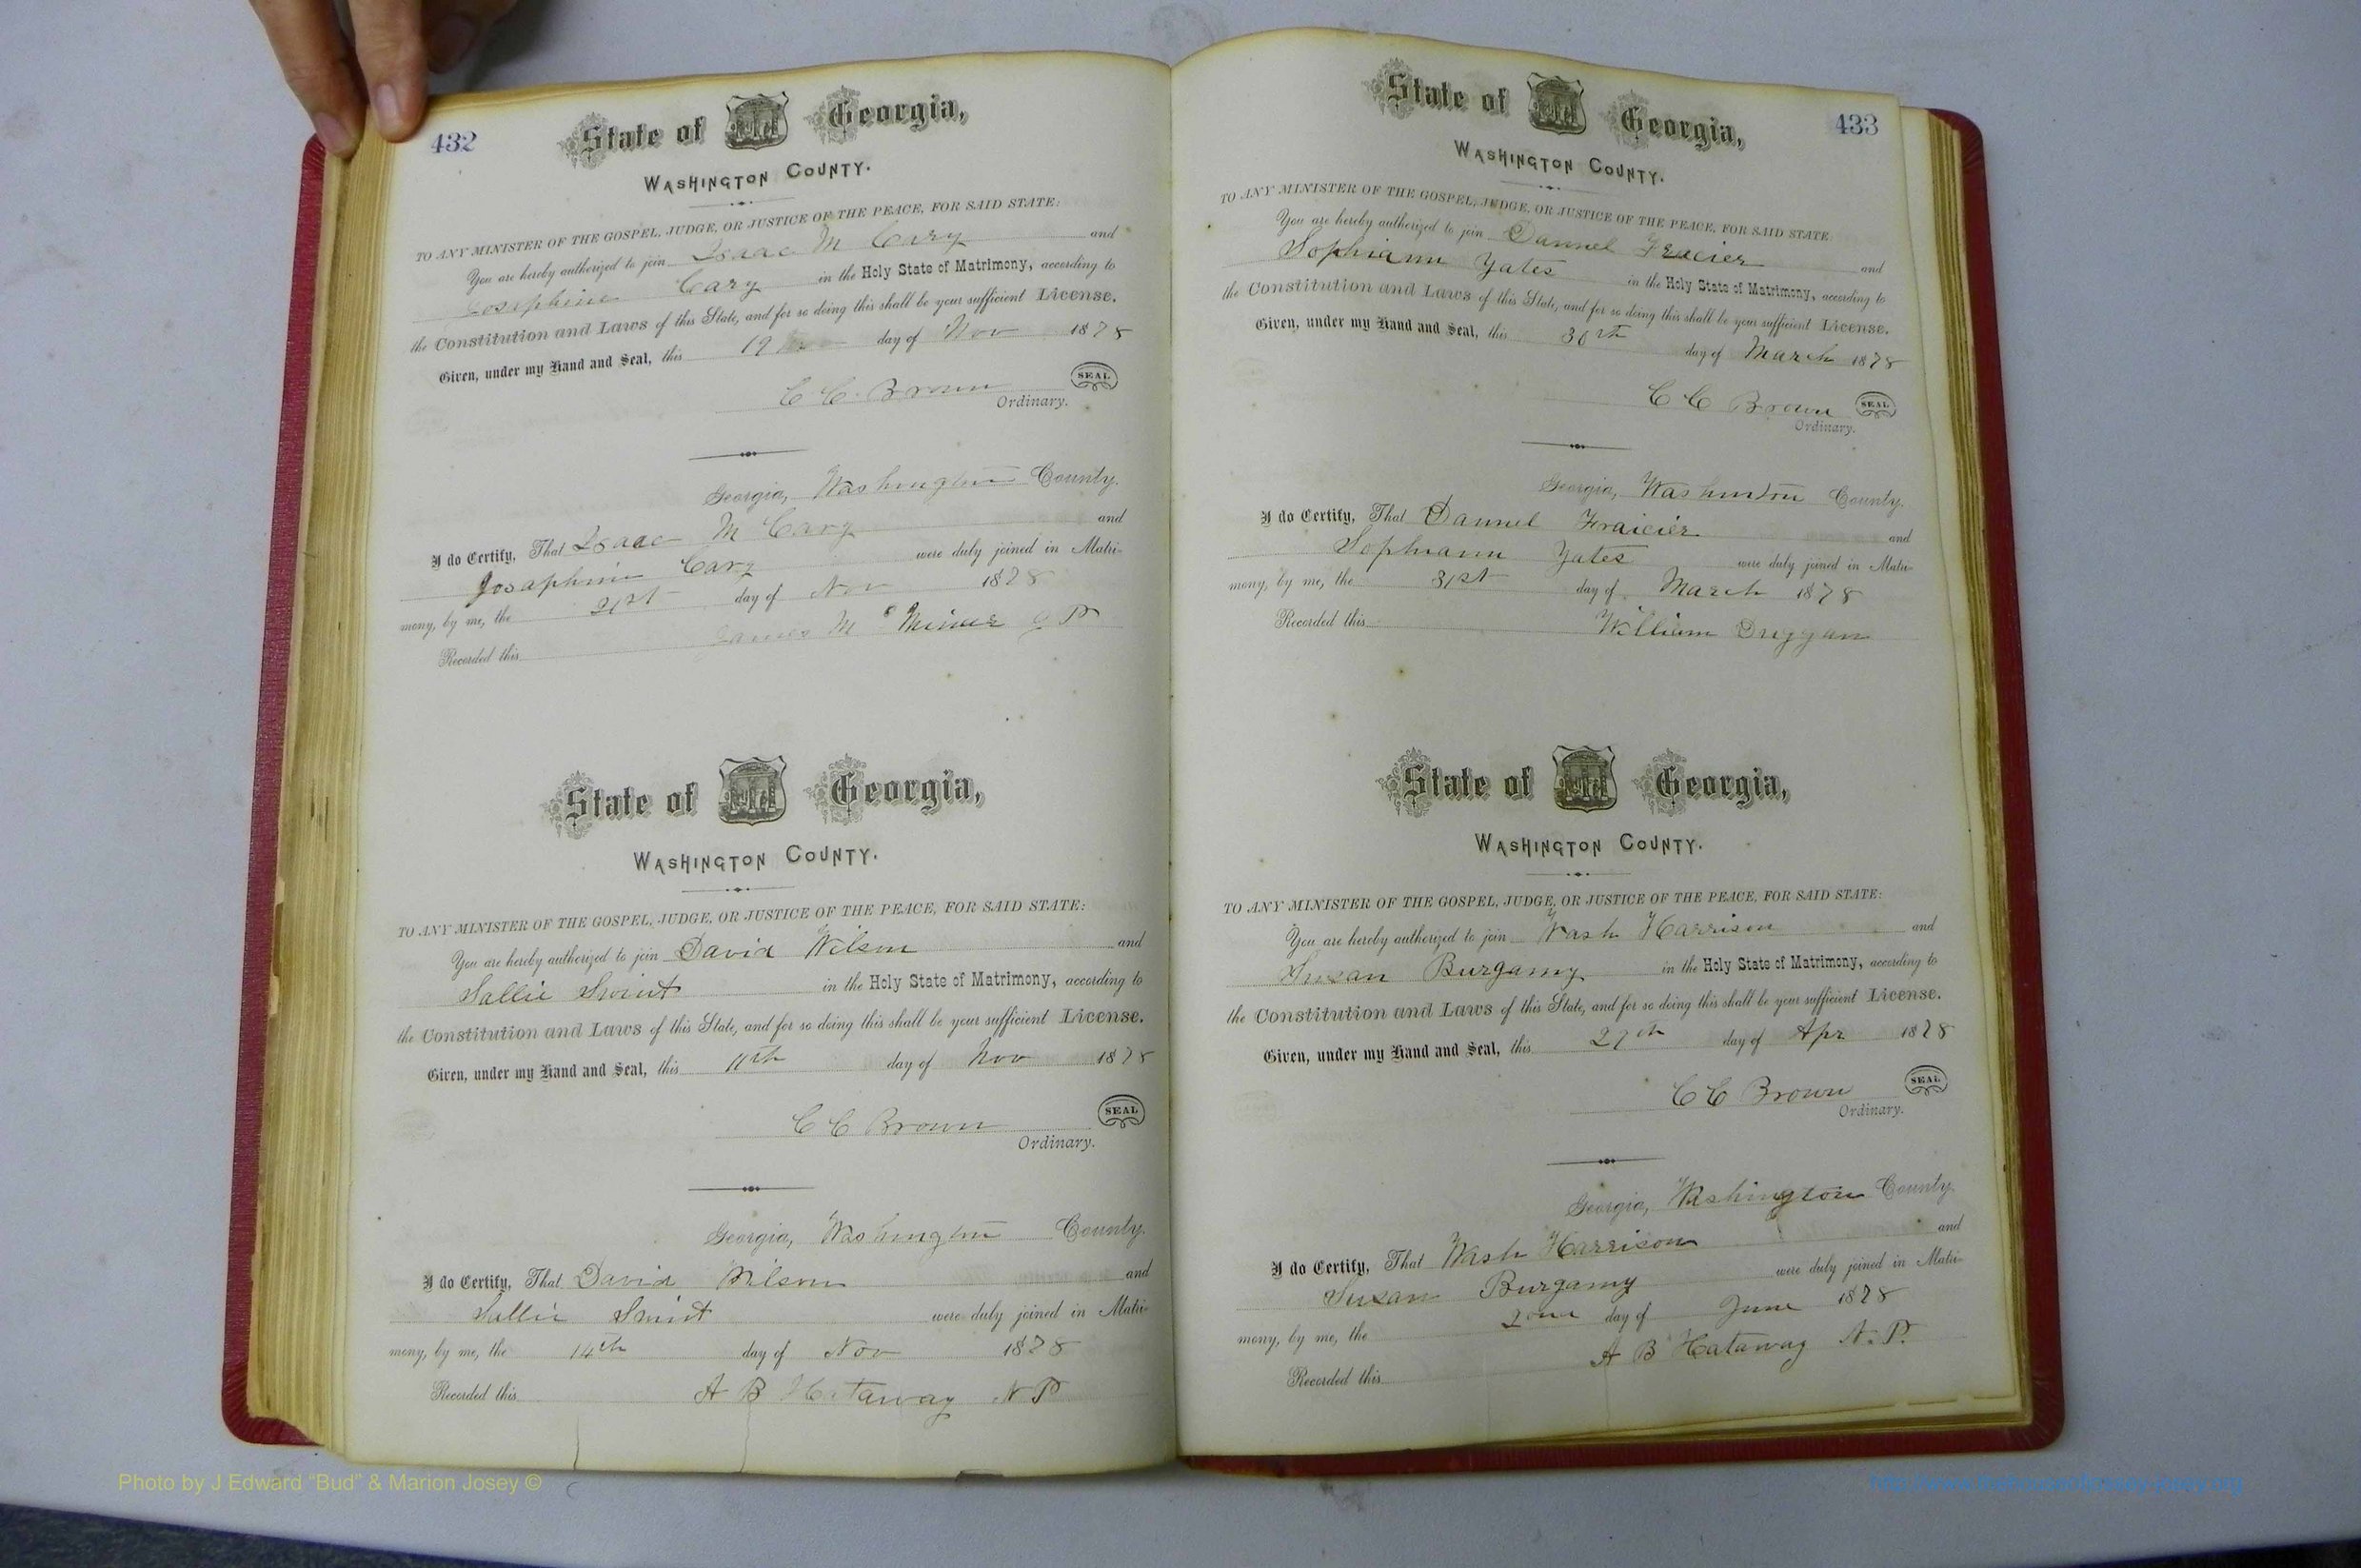 432
State of Georgia,
WASHINGTON COUNTY.
TO ANY MINISTER OF THE GOSPEL, JUDGE, OR JUSTICE OF THE PEACE, FOR SAID STATE:
You are hereby authorized to join Isaac M Cary and
Josaphine Cary in the Holy State of Matrimony, according to
the Constitution and Laws of this State, and for so doing this shall be your sufficient License.
Given, under my Hand and Seal, this 19 day of Nov 1878
C C Brown SEAL
Ordinary.
Georgia, Washington County.
I do Certify, That Isaac M Cary and
Josaphine Cary were duly joined in Matri-
mony, by me, the 21st day of Nov 1878
Recorded this James M J P
State of Georgia,
WASHINGTON COUNTY.
TO ANY MINISTER OF THE GOSPEL, JUDGE, OR JUSTICE OF THE PEACE, FOR SAID STATE:
You are hereby authorized to join David Wilson and
Sallie Swint in the Holy State of Matrimony, according to
the Constitution and Laws of this State, and for so doing this shall be your sufficient License.
Given, under my Hand and Seal, this 11th day of Nov 1878
C C Brown SEAL
Ordinary.
Georgia, Washington County.
I do Certify, That David Wilson and
Sallie Swint were duly joined in Matri-
mony, by me, the 14th day of Nov 1878
Recorded this A B Hataway N P
433
State of Georgia,
WASHINGTON COUNTY.
TO ANY MINISTER OF THE GOSPEL, JUDGE, OR JUSTICE OF THE PEACE, FOR SAID STATE:
You are hereby authorized to join Dannel Fracier and
Sophiann Yates in the Holy State of Matrimony, according to
the Constitution and Laws of this State, and for so doing this shall be your sufficient License.
Given, under my Hand and Seal, this 30th day of March 1878
C C Brown SEAL
Ordinary.
Georgia, Washinton County.
I do Certify, That Dannel Fraicier and
Sophiann Yates were duly joined in Matri-
mony, by me, the 31st day of March 1878
Recorded this William Duggan
State of Georgia,
WASHINGTON COUNTY.
TO ANY MINISTER OF THE GOSPEL, JUDGE, OR JUSTICE OF THE PEACE, FOR SAID STATE:
You are hereby authorized to join Wash Harrison and
Susan Burgamy in the Holy State of Matrimony, according to
the Constitution and Laws of this State, and for so doing this shall be your sufficient License.
Given, under my Hand and Seal, this 27th day of Apr 1878
C C Brown SEAL
Ordinary.
Georgia, Washington County.
I do Certify, That Wash Harrison and
Susan Burgamy were duly joined in Matri-
mony, by me, the 2ond day of June 1878
Recorded this A B Hataway N. P.
Photo by J Edward “Bud” & Marion Josey ©